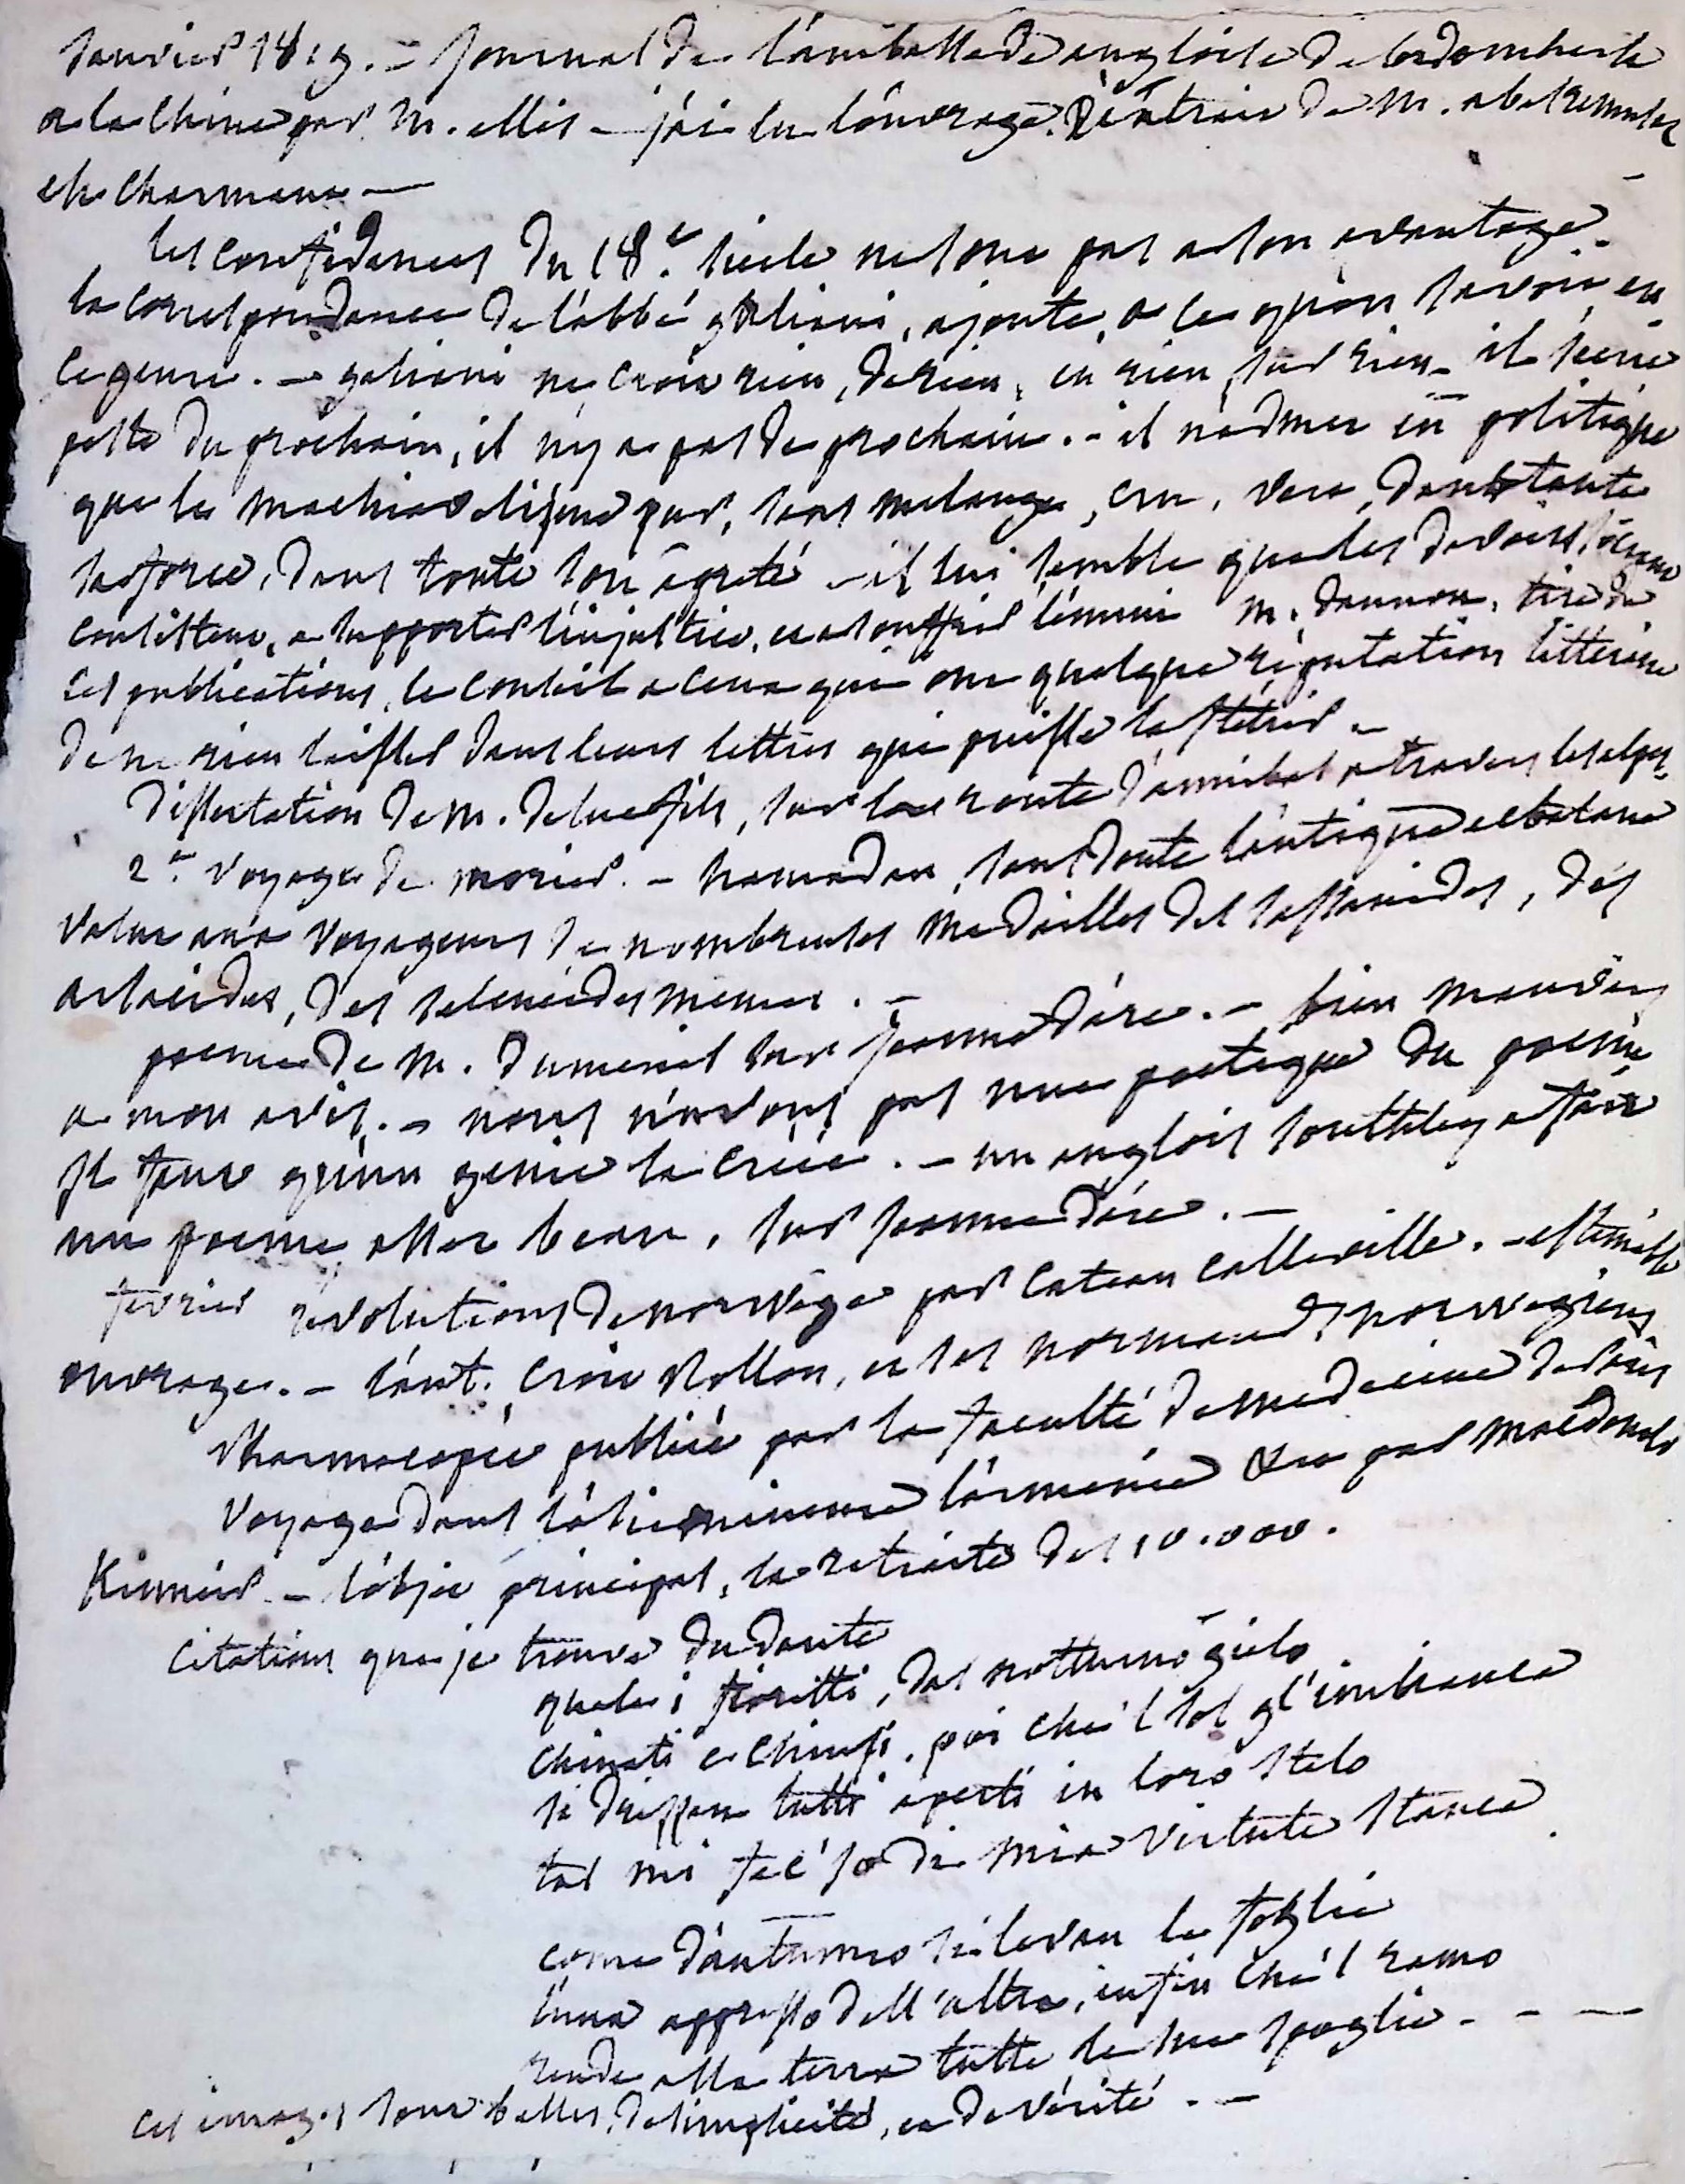 Janvier 1819. - Journal de l'ambassade angloise de lord amherst
a la Chine par M. ellis - j'ai lu l'ouvrage. L'extrait de M. abel remusat
est charmant -
les confidences du 18.e siecle ne sont pas a son avantage.
la correspondance de l'abbé galiani, ajoute, a ce qu'on savoit en
ce genre. - galiani ne croit rien, de rien, en rien, sur rien - il
du prochain, il n'y a pas de prochain. - il n'admet en politique
que le machiavelisme pur, sans melange, cru, vert, dans toute
sa force, dans toute son âpreté - il lui semble que les devoirs
consistent, a supporter l'injustice, et a souffrir l'ennui M. daunou, tire de
ces publications, le conseil a ceux qui ont quelque réputation litteraire
de ne rien laisser dans leurs lettres qui puisse la flétrir -
dissertation de M. deluc fils, sur la route d'annibal a travers les alpes.
2.e voyage de morier. - hamadan, sans doute l'antique ecbatane
valut aux voyageurs de nombreuses medailles des sassanides, des
arsacides, des seleucides memes. -
poeme de M. dumenil sur jeanne d'arc. - bien mauvais
a mon avis. - nous n'avons pas une poetique du poeme
il faut qu'un genie la crée. - un anglois southey a fait
un poeme assez beau, sur jeanne d'arc. -
fevrier revolutions de norwège par Cateau Calleville. - estimable
ouvrage. - l'aut. croit Rollon, et ses normands norwegiens
Pharmacopée publiée par la faculté de medecine de Paris
Voyage dans l'asie mineure l'armenie &ca par Macdonald
Kinneir - l'objet principal, la retraite des 10.000.
Citations que je trouve du dante
quale i fioretti, dal notturno gielo
chinati e chiusi, poi che'l sol gl'imbianca
si drizzan tutti aperti in loro stelo
tal mi fec'io di mia virtute stanca
come d'autunno si levan le foglie
l'una appresso dell'altra, infin che'l ramo
rende alla terra tutte le sue spoglie - - -
ces images sont belles, de simplicité, et de vérité. -